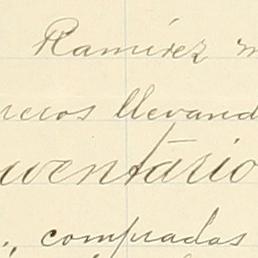 Ramírez
llevand
ventário
compradas